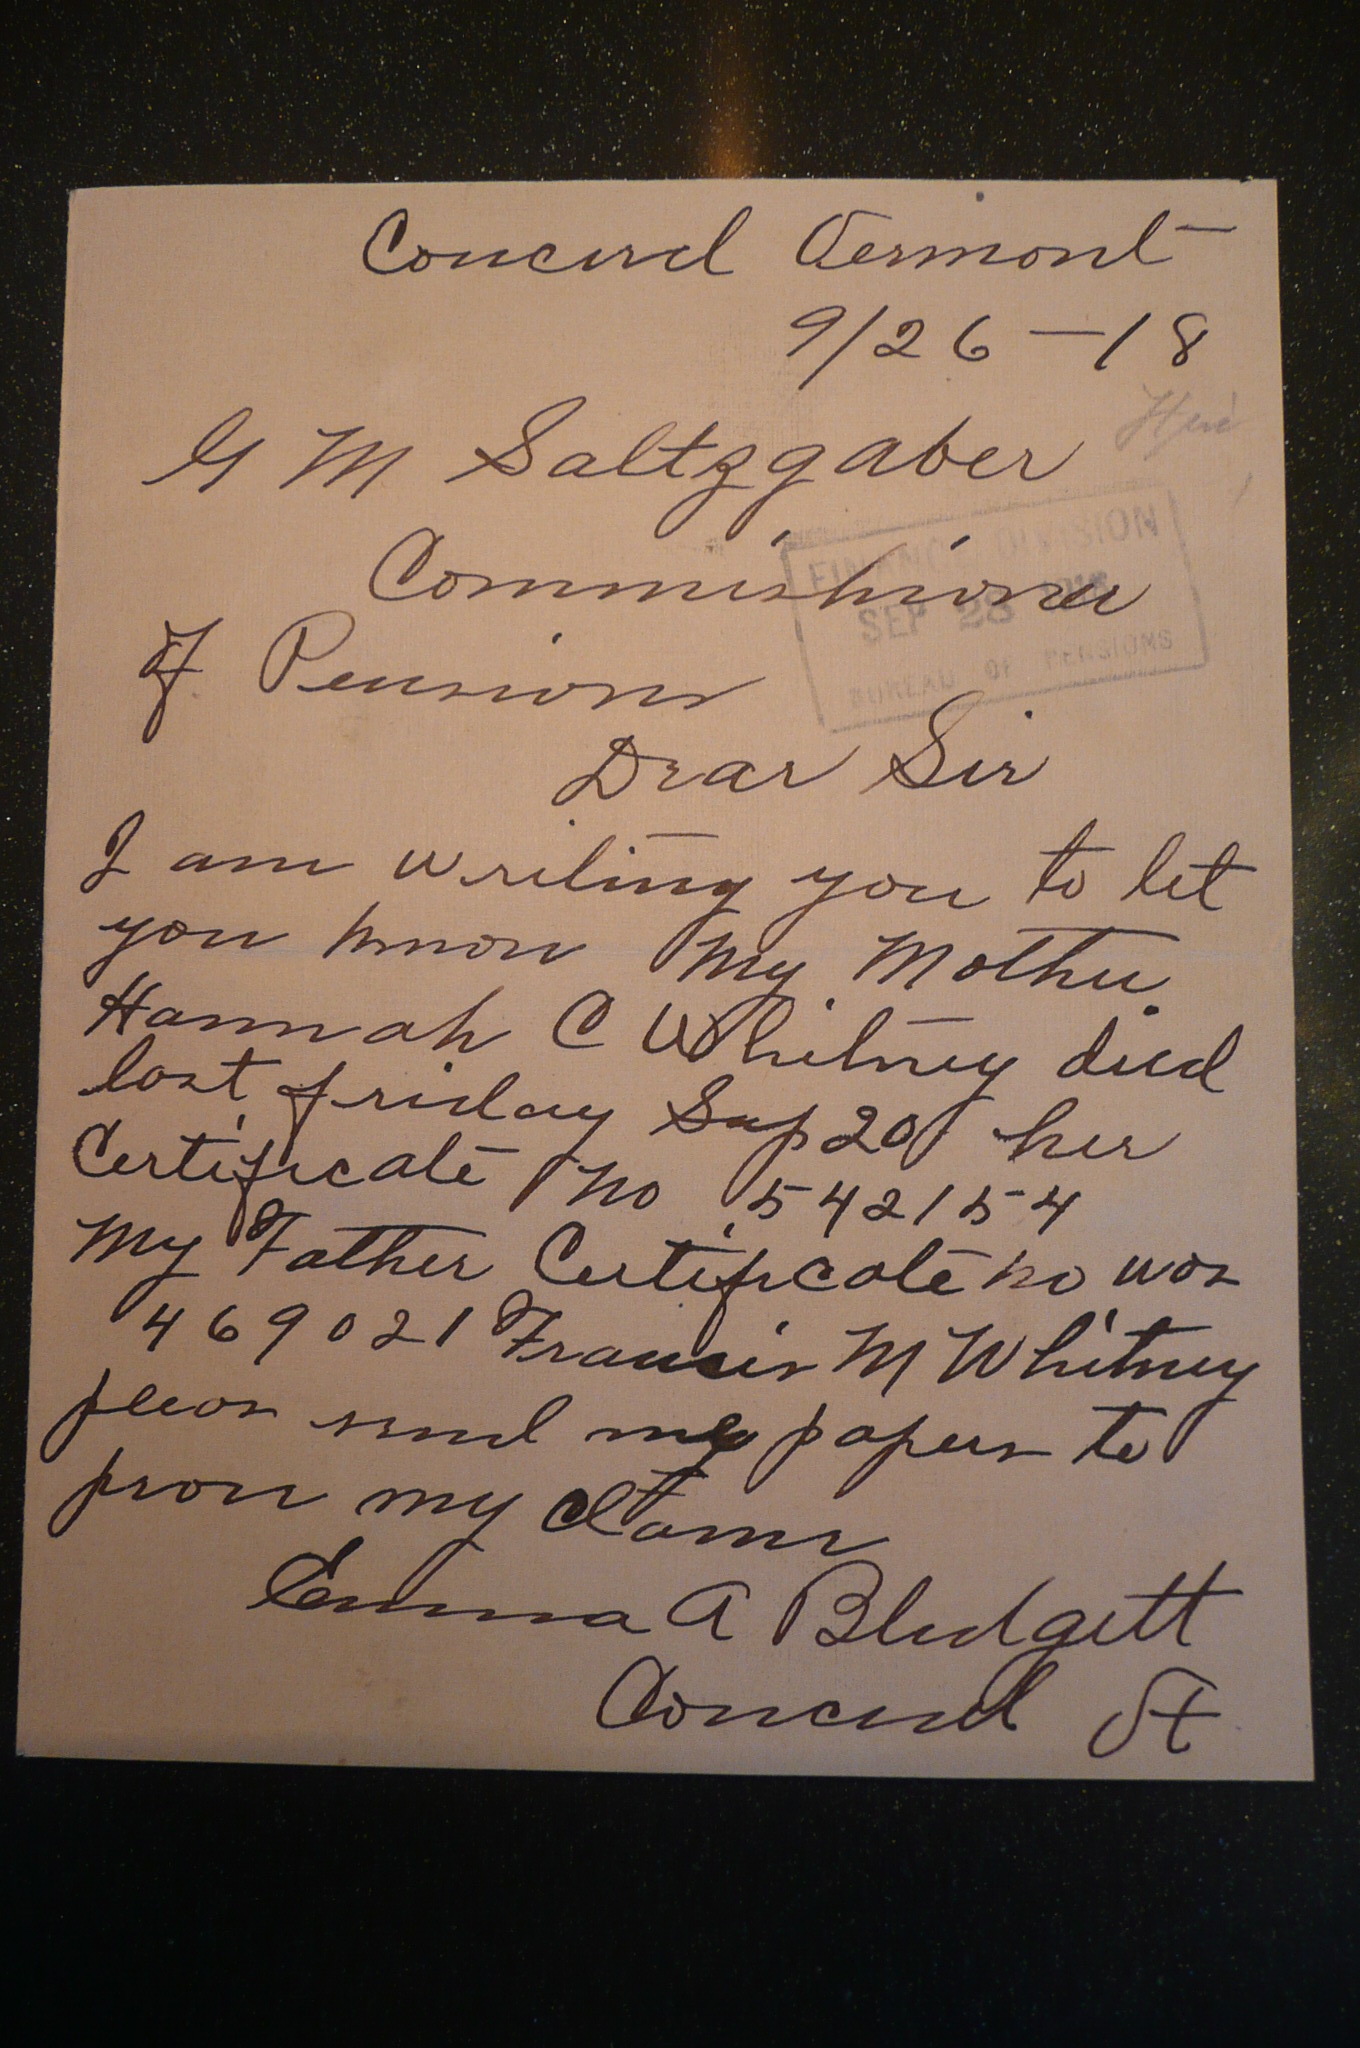 Concord Vermont
9/26-18
G M Saltzgaber
Commishioner
of Pensions
FINANCE DIVISION
SEP 28
BUREAU OF PENSIONS
Dear Sir
I am writing you to let
you know My Mother
Hannah C Whitney died
last friday Sep 20 her
Certificate No 542154
My Father Certificate no was
469021 Francis M Whitney
pleas send my papers to
prove my Clame
Emma A Blodgett
Concord